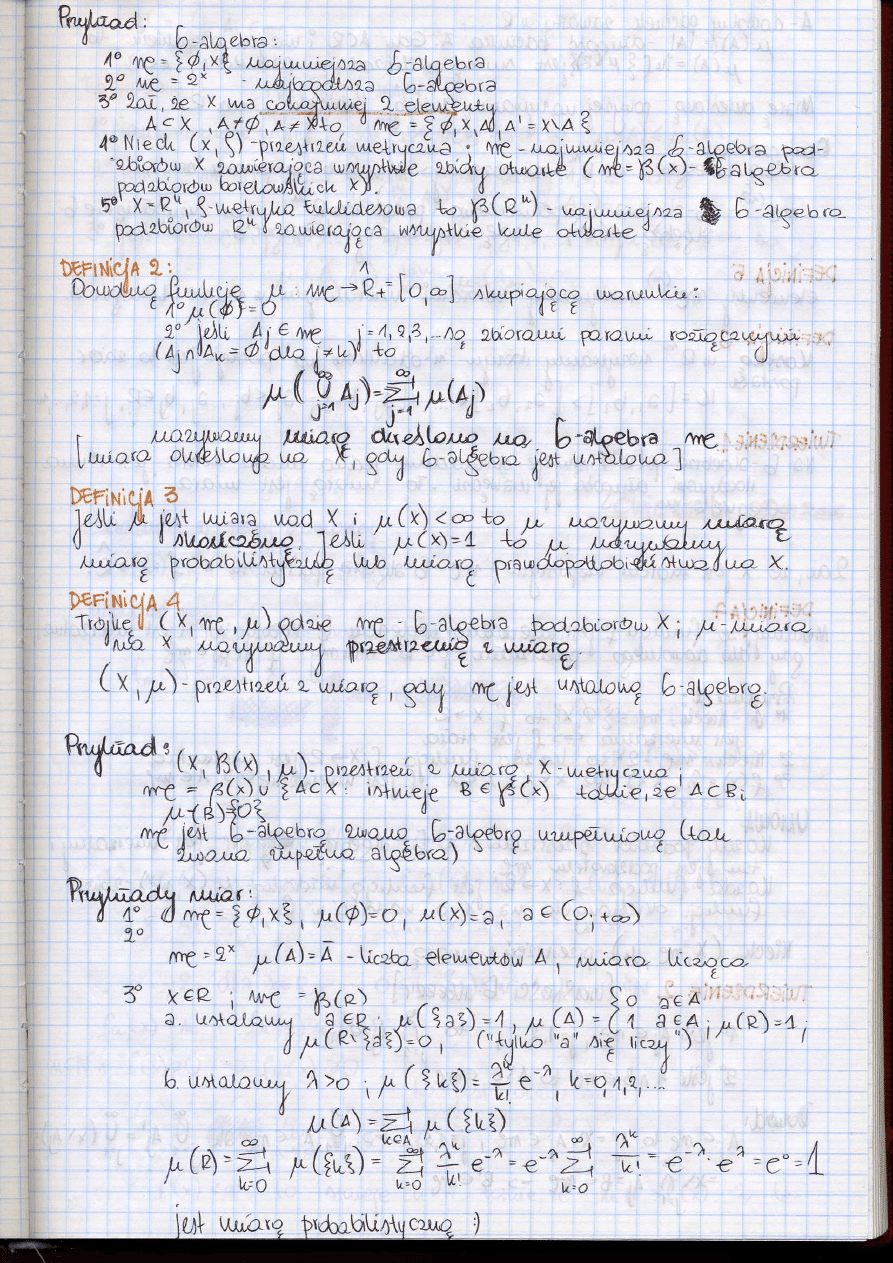 Przykład:
б-algebra:
1° me = {∅, X} najmniejsza б-algebra
2° me = 2ˣ - najbogatsza б-algebra
3° zał, że X ma conajmniej 2 elementy
A ⊂ X, A≠∅, A≠X to me = {∅, X, A, A' = X\A}
4° Niech (X, ρ) - przestrzeń metryczna; me - najmniejsza б-algebra pod-
zbiorów X zawierająca wszystkie zbiory otwarte (me = β(X) - б-algebra
podzbiorów borelowskich X).
5° X=Rⁿ, ρ-metryka Euklidesowa to β(Rⁿ) - najmniejsza б-algebra
podzbiorów Rⁿ zawierająca wszystkie kule otwarte
DEFINICJA 2:
Dowolną funkcję μ: me → R̂₊ = [0, ∞] skupiającą warunku:
1° μ(∅)=0
2° jeśli Aj ∈ me j=1,2,3,... są zbiorami parami rozłącznymi
(Aj ∩ Ak = ∅ dla j≠k) to
μ(⋃_{j=1}^{∞} Aj) = ∑_{j=1}^{∞} μ(Aj)
nazywamy miarą określoną na б-algebra me
[miara określona na X, gdy б-algebra jest ustalona]
DEFINICJA 3
Jeśli μ jest miarą nad X i μ(X) < ∞ to μ nazywamy miarą
skończoną. Jeśli μ(X)=1 to μ nazywamy
miarą probabilistyczną lub miarą prawdopodobieństwa na X.
DEFINICJA 4
Trójkę (X, me, μ) gdzie me - б-algebra podzbiorów X; μ-miara
na X nazywamy przestrzenią z miarą.
(X, μ) - przestrzeń z miarą, gdy me jest ustaloną б-algebrą.
Przykład:
(X, β(X), μ) - przestrzeń z miarą, X-metryczna;
me = β(X) ∪ {A⊂X: istnieje B ∈ β(X) takie, że A⊂B;
μ(B)={0}
me jest б-algebrą zwaną б-algebrą uzupełnioną (tak
zwana zupełna algebra)
Przykłady miar:
1° me = {∅, X}, μ(∅)=0, μ(X)=a, a∈(0; +∞)
2°
me=2ˣ μ(A)=Ā - liczba elementów A, miara licząca
3° X∈R; me = β(R)
a. ustalamy a∈R; μ({a})=1, μ(A) = { 0 a∈A 1 a∈A; μ(R)=1;
μ(R\{a})=0, ("tylko "a" się liczy")
b. ustalamy λ>0; μ({k}) = λᵏ/k! e^{-λ}, k=0,1,2,...
μ(A) = ∑_{k∈A} μ({k})
μ(R) = ∑_{k=0}^{∞} μ({k}) = ∑_{k=0}^{∞} λᵏ/k! e^{-λ} = e^{-λ} ∑_{k=0}^{∞} λᵏ/k! = e^{-λ}·e^{λ} = e⁰ = 1
jest miarą probabilistyczną :)